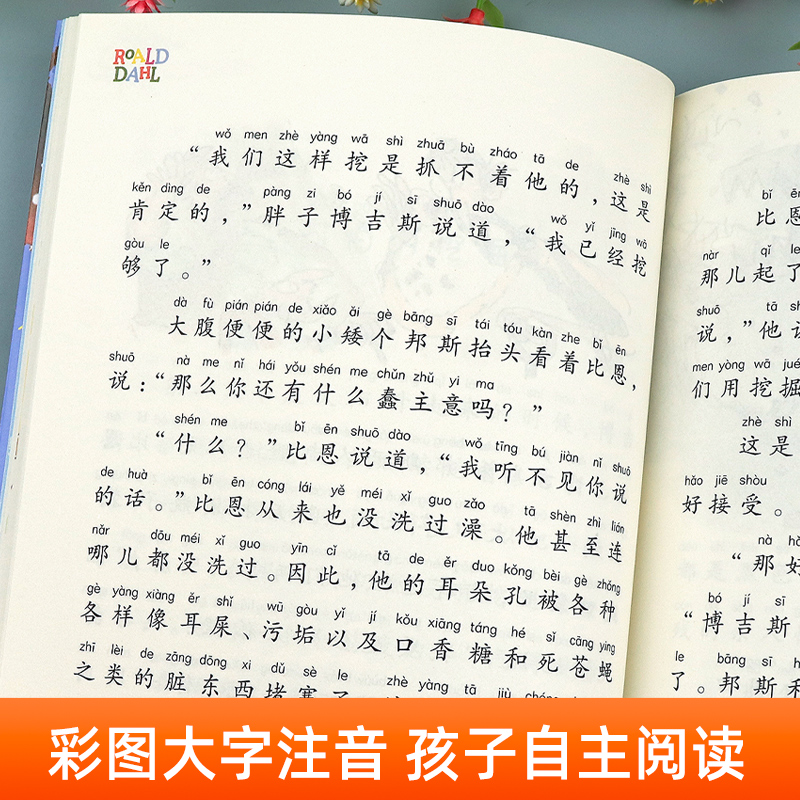 ROALD
DAHL
wǒ men zhè yàng wā shì zhuā bù zháo tā de zhè shì
“我们这样挖是抓不着他的,这是
kěn dìng de pàng zi bó jí sī shuō dào wǒ yǐ jīng wā
肯定的,”胖子博吉斯说道,“我已经挖
gòu le
够了。”
dà fù pián pián de xiǎo ǎi gè bāng sī tái tóu kàn zhe bǐ ēn
大腹便便的小矮个邦斯抬头看着比恩,
shuō nà me nǐ hái yǒu shén me chǔn zhǔ yi ma
说:“那么你还有什么蠢主意吗?”
shén me bǐ ēn shuō dào wǒ tīng bú jiàn nǐ shuō
“什么?”比恩说道,“我听不见你说
de huà bǐ ēn cóng lái yě méi xǐ guo zǎo tā shèn zhì lián
的话。”比恩从来也没洗过澡。他甚至连
nǎr dōu méi xǐ guo yīn cǐ tā de ěr duo kǒng bèi gè zhǒng
哪儿都没洗过。因此,他的耳朵孔被各种
gè yàng xiàng ěr shǐ wū gòu yǐ jí kǒu xiāng táng hé sǐ cāng ying
各样像耳屎、污垢以及口香糖和死苍蝇
zhī lèi de zāng dōng xi dǔ sè le zhè yàng tā jiù
之类的脏东西堵塞了
bǐ ē
比恩
nàr qǐ le
那儿起了
shuō tā sh
说,”他说
men yòng wā jué
们用挖掘
zhè shì
这是
hǎo jiē shòu
好接受。
nà hǎ
“那好
bó jí sī
“博吉斯
le bāng sī h
了。邦斯和
彩图大字注音 孩子自主阅读